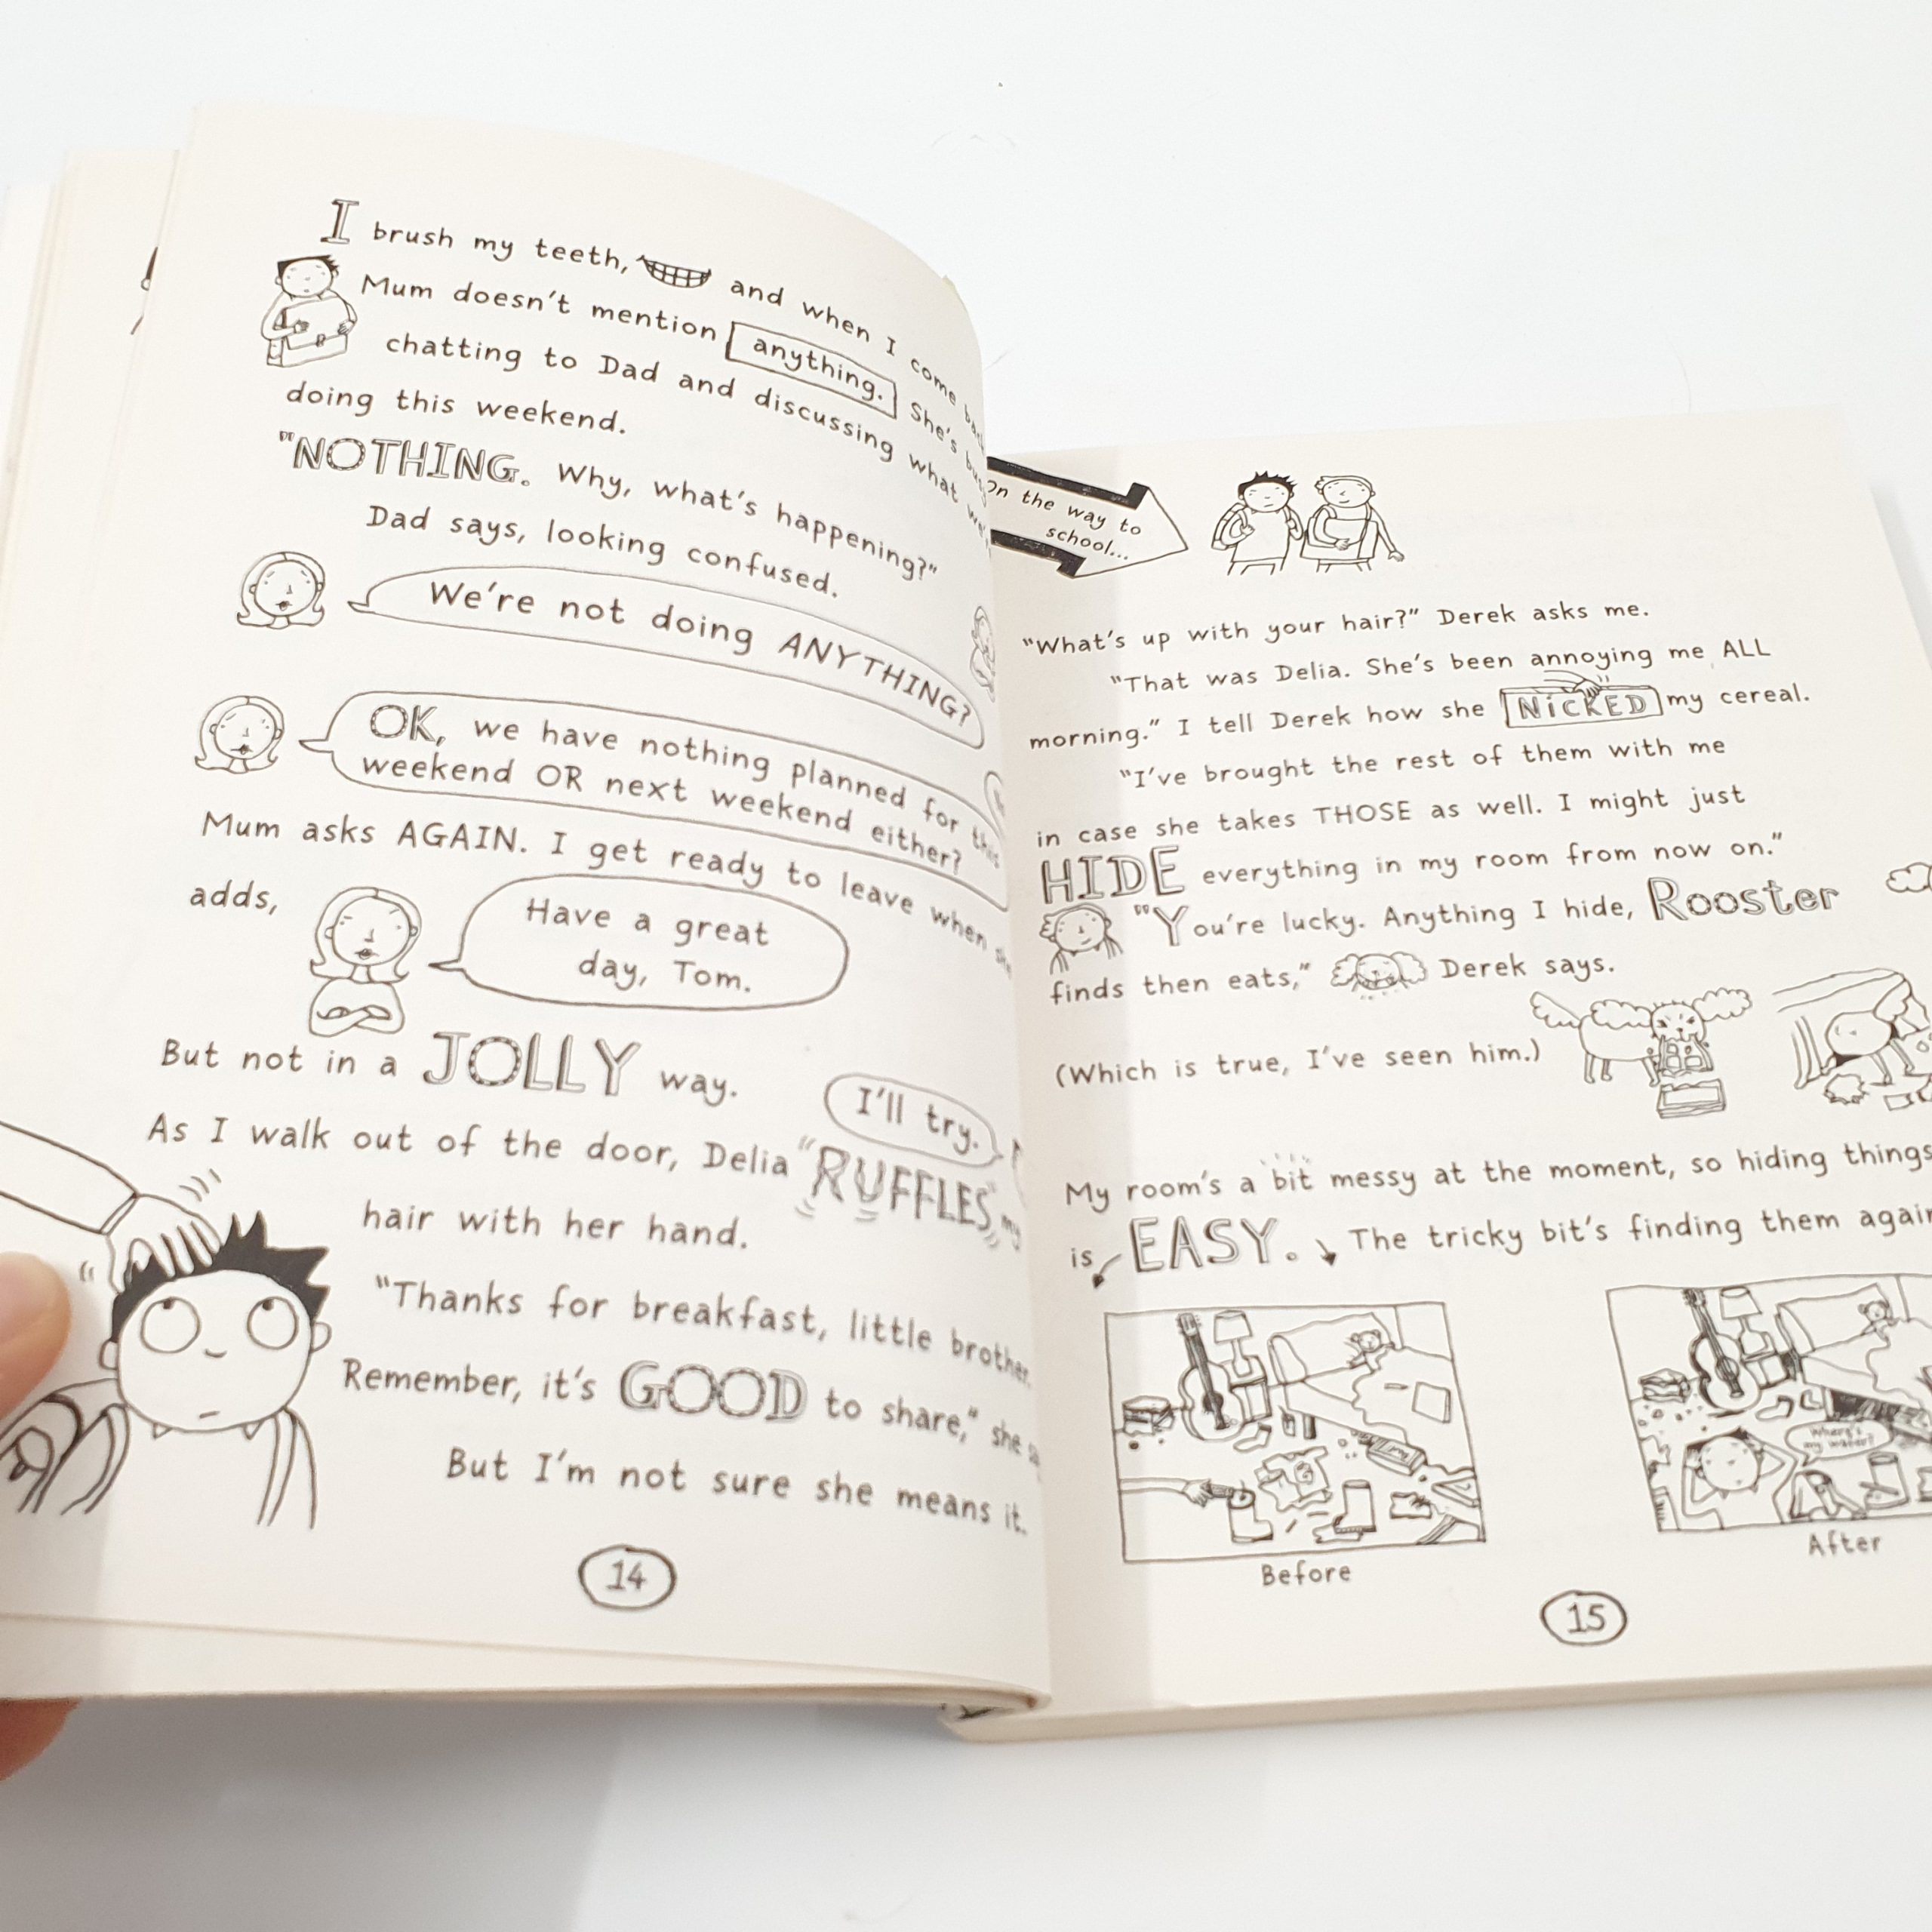 I brush my teeth, and when I come back
Mum doesn't mention anything. She's busy
chatting to Dad and discussing what we're
doing this weekend.
"NOTHING. Why, what's happening?"
Dad says, looking confused.
We're not doing ANYTHING?
OK, we have nothing planned for this
weekend OR next weekend either?
Mum asks AGAIN. I get ready to leave when she
adds,
Have a great
day, Tom.
But not in a JOLLY way.
I'll try.
As I walk out of the door, Delia "RUFFLES" my
hair with her hand.
"Thanks for breakfast, little brother.
Remember, it's GOOD to share," she
But I'm not sure she means it.
14
On the way to
school...
"What's up with your hair?" Derek asks me.
"That was Delia. She's been annoying me ALL
morning." I tell Derek how she NiCKED my cereal.
"I've brought the rest of them with me
in case she takes THOSE as well. I might just
HIDE everything in my room from now on."
"You're lucky. Anything I hide, Rooster
finds then eats," Derek says.
(Which is true, I've seen him.)
My room's a bit messy at the moment, so hiding things
is EASY. The tricky bit's finding them again
Where's
my wafer?
Before
After
15